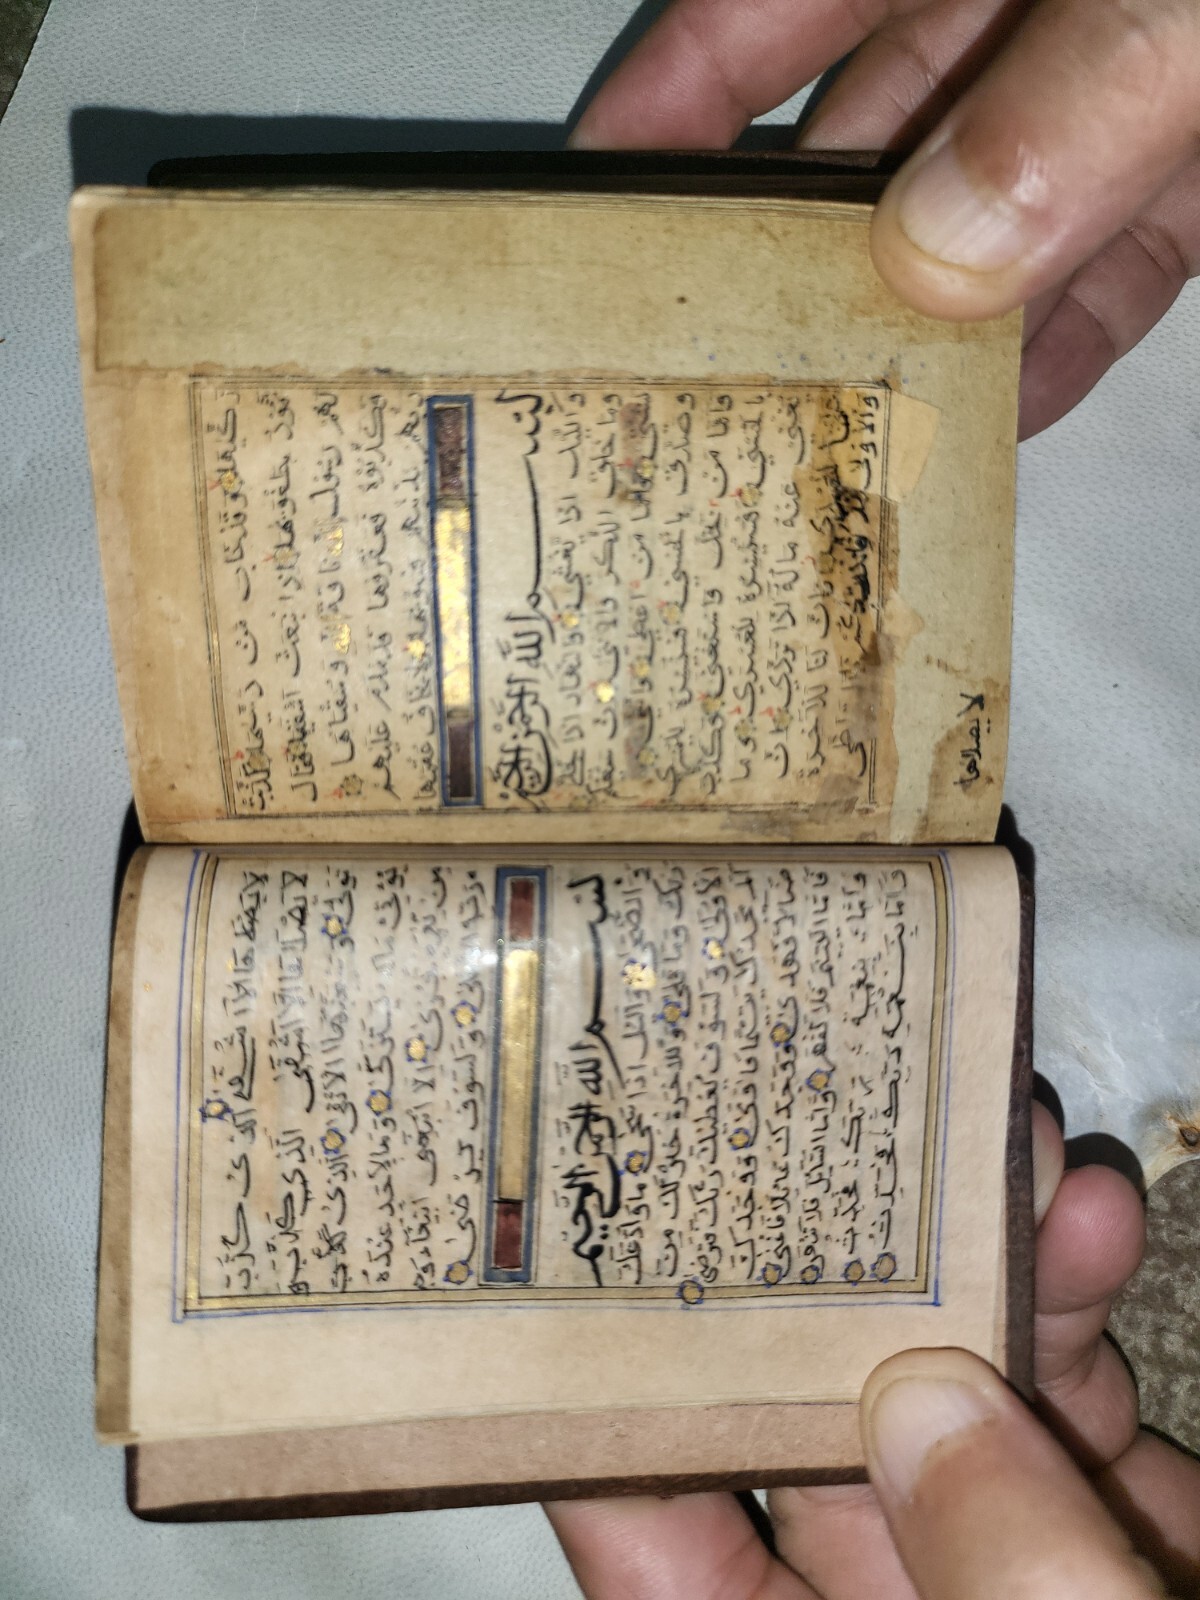 زكيها وقد خاب من دسيها كذبت
ثمود بطغويها اذا نبعث اشقيها فقال
لهم رسول الله ناقة الله وسقياها
فكذبوه فعقروها فدمدم عليهم
ربهم بذنبهم فسويها ولا يخاف عقبيها
بسم الله الرحمن الرحيم
واليل اذا يغشى والنهار اذا تجلى
وما خلق الذكر والانثى ان سعيكم
لشتى فاما من اعطى واتقى
وصدق بالحسنى فسنيسره لليسرى
واما من بخل واستغنى وكذب
بالحسنى فسنيسره للعسرى وما
يغنى عنه ماله اذا تردى ان
علينا للهدى وان لنا للاخرة
والاولى فانذرتكم نارا تلظى
لا يصلاها
الذى كذب
لا يصلاها الا الاشقى الذى كذب و
تولى وسيجنبها الاتقى الذى
يؤتى ماله يتزكى وما لاحد عنده
من نعمة تجزى الا ابتغاء وجه
ربه الاعلى ولسوف يرضى
بسم الله الرحمن الرحيم
والضحى واليل اذا سجى ما ودعك
ربك وما قلى وللاخرة خير لك من
الاولى ولسوف يعطيك ربك فترضى
الم يجدك يتيما فاوى ووجدك
ضالا فهدى ووجدك عائلا فاغنى
فاما اليتيم فلا تقهر واما السائل فلا تنهر
واما بنعمة ربك فحدث
واما بنعمة ربك فحدث